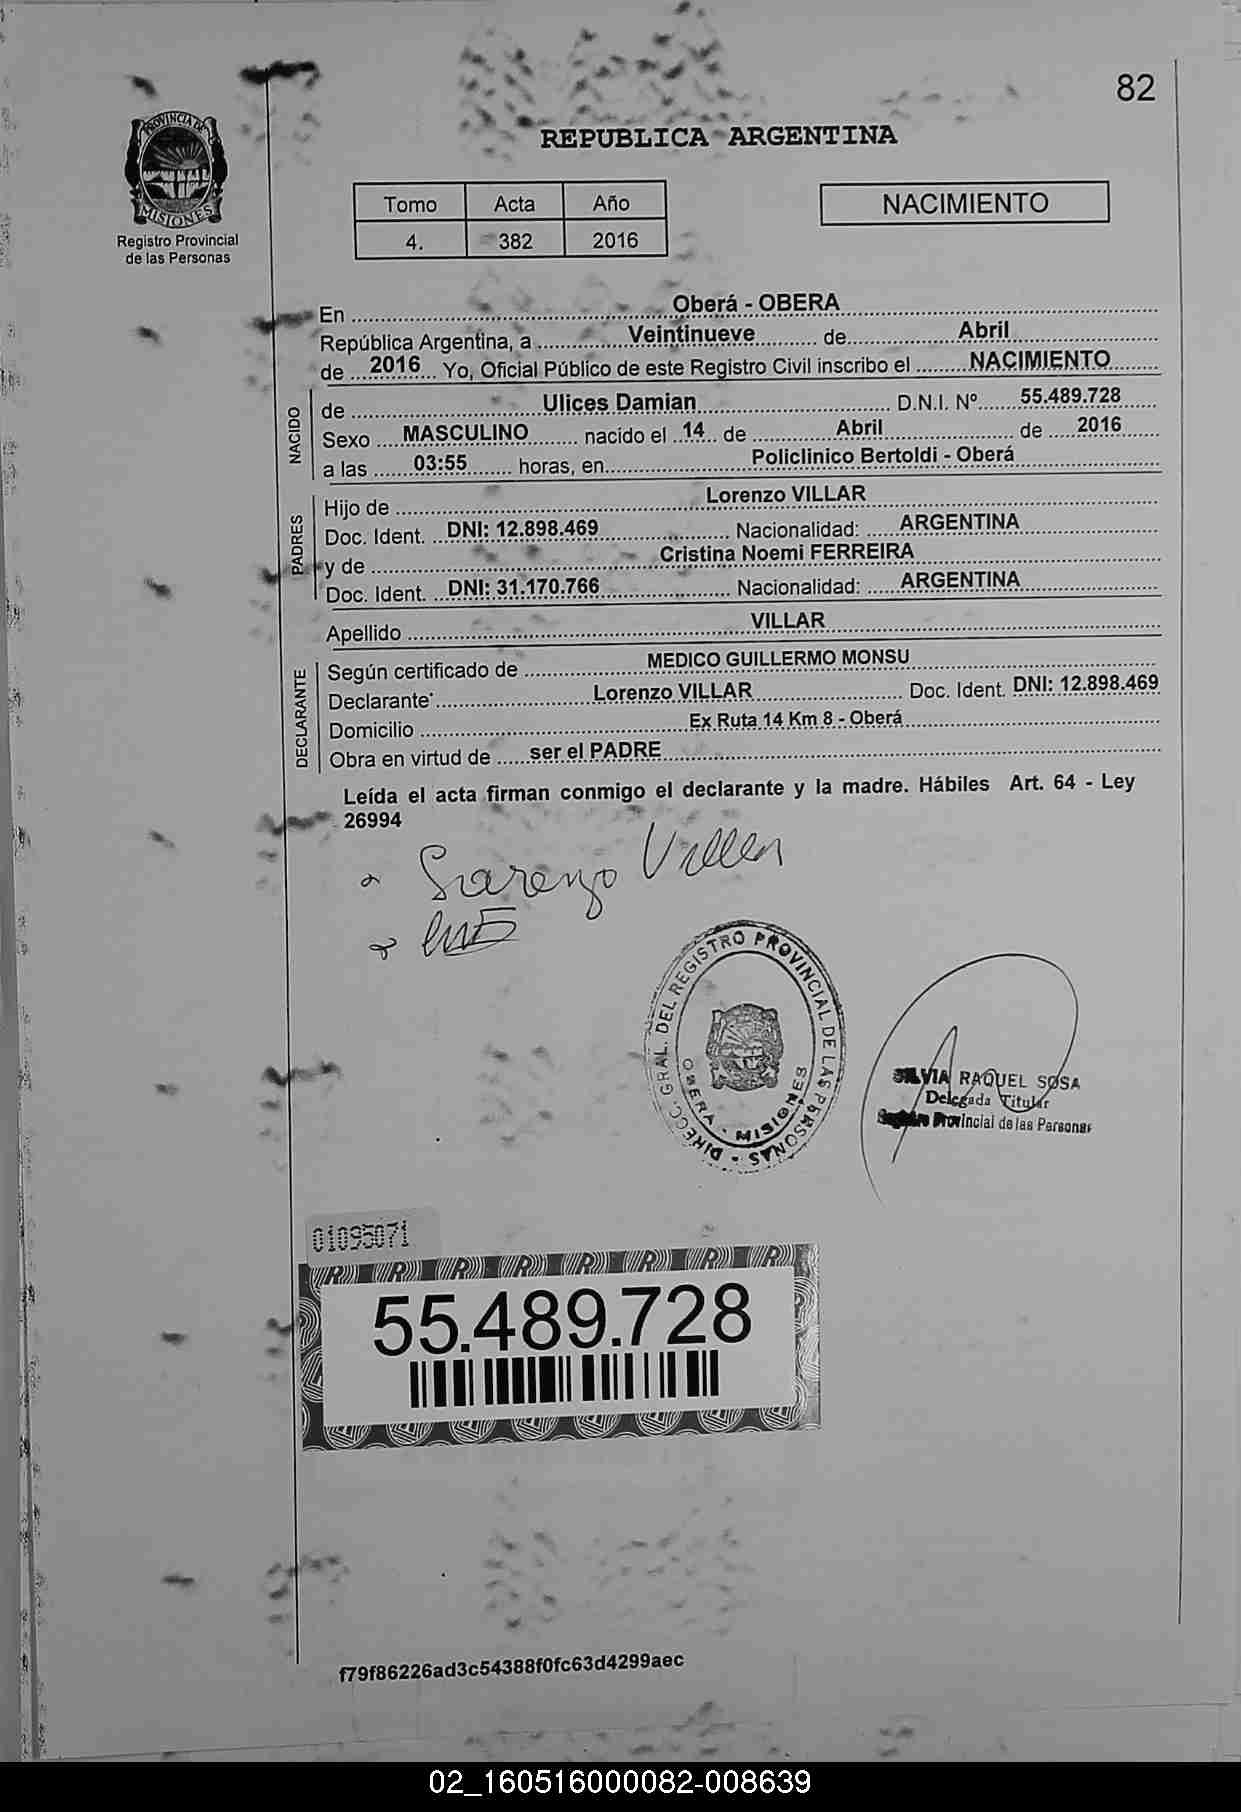 82
PROVINCIA DE
MISIONES
Registro Provincial
de las Personas
REPUBLICA ARGENTINA
Tomo Acta Año
4. 382 2016
NACIMIENTO
En Oberá - OBERA
República Argentina, a Veintinueve de Abril
de 2016 Yo, Oficial Público de este Registro Civil inscribo el NACIMIENTO
NACIDO
de Ulices Damian D.N.I. Nº 55.489.728
Sexo MASCULINO nacido el 14 de Abril de 2016
a las 03:55 horas, en Policlinico Bertoldi - Oberá
PADRES
Hijo de Lorenzo VILLAR
Doc. Ident. DNI: 12.898.469 Nacionalidad: ARGENTINA
y de Cristina Noemi FERREIRA
Doc. Ident. DNI: 31.170.766 Nacionalidad: ARGENTINA
Apellido VILLAR
DECLARANTE
Según certificado de MEDICO GUILLERMO MONSU
Declarante Lorenzo VILLAR Doc. Ident. DNI: 12.898.469
Domicilio Ex Ruta 14 Km 8 - Oberá
Obra en virtud de ser el PADRE
Leída el acta firman conmigo el declarante y la madre. Hábiles Art. 64 - Ley
26994
DIRECC. GRAL. DEL REGISTRO PROVINCIAL DE LAS PERSONAS
OBERA - MISIONES
SILVIA RAQUEL SOSA
Delegada Titular
Registro Provincial de las Personas
01095071
55.489.728
f79f86226ad3c54388f0fc63d4299aec
02_160516000082-008639